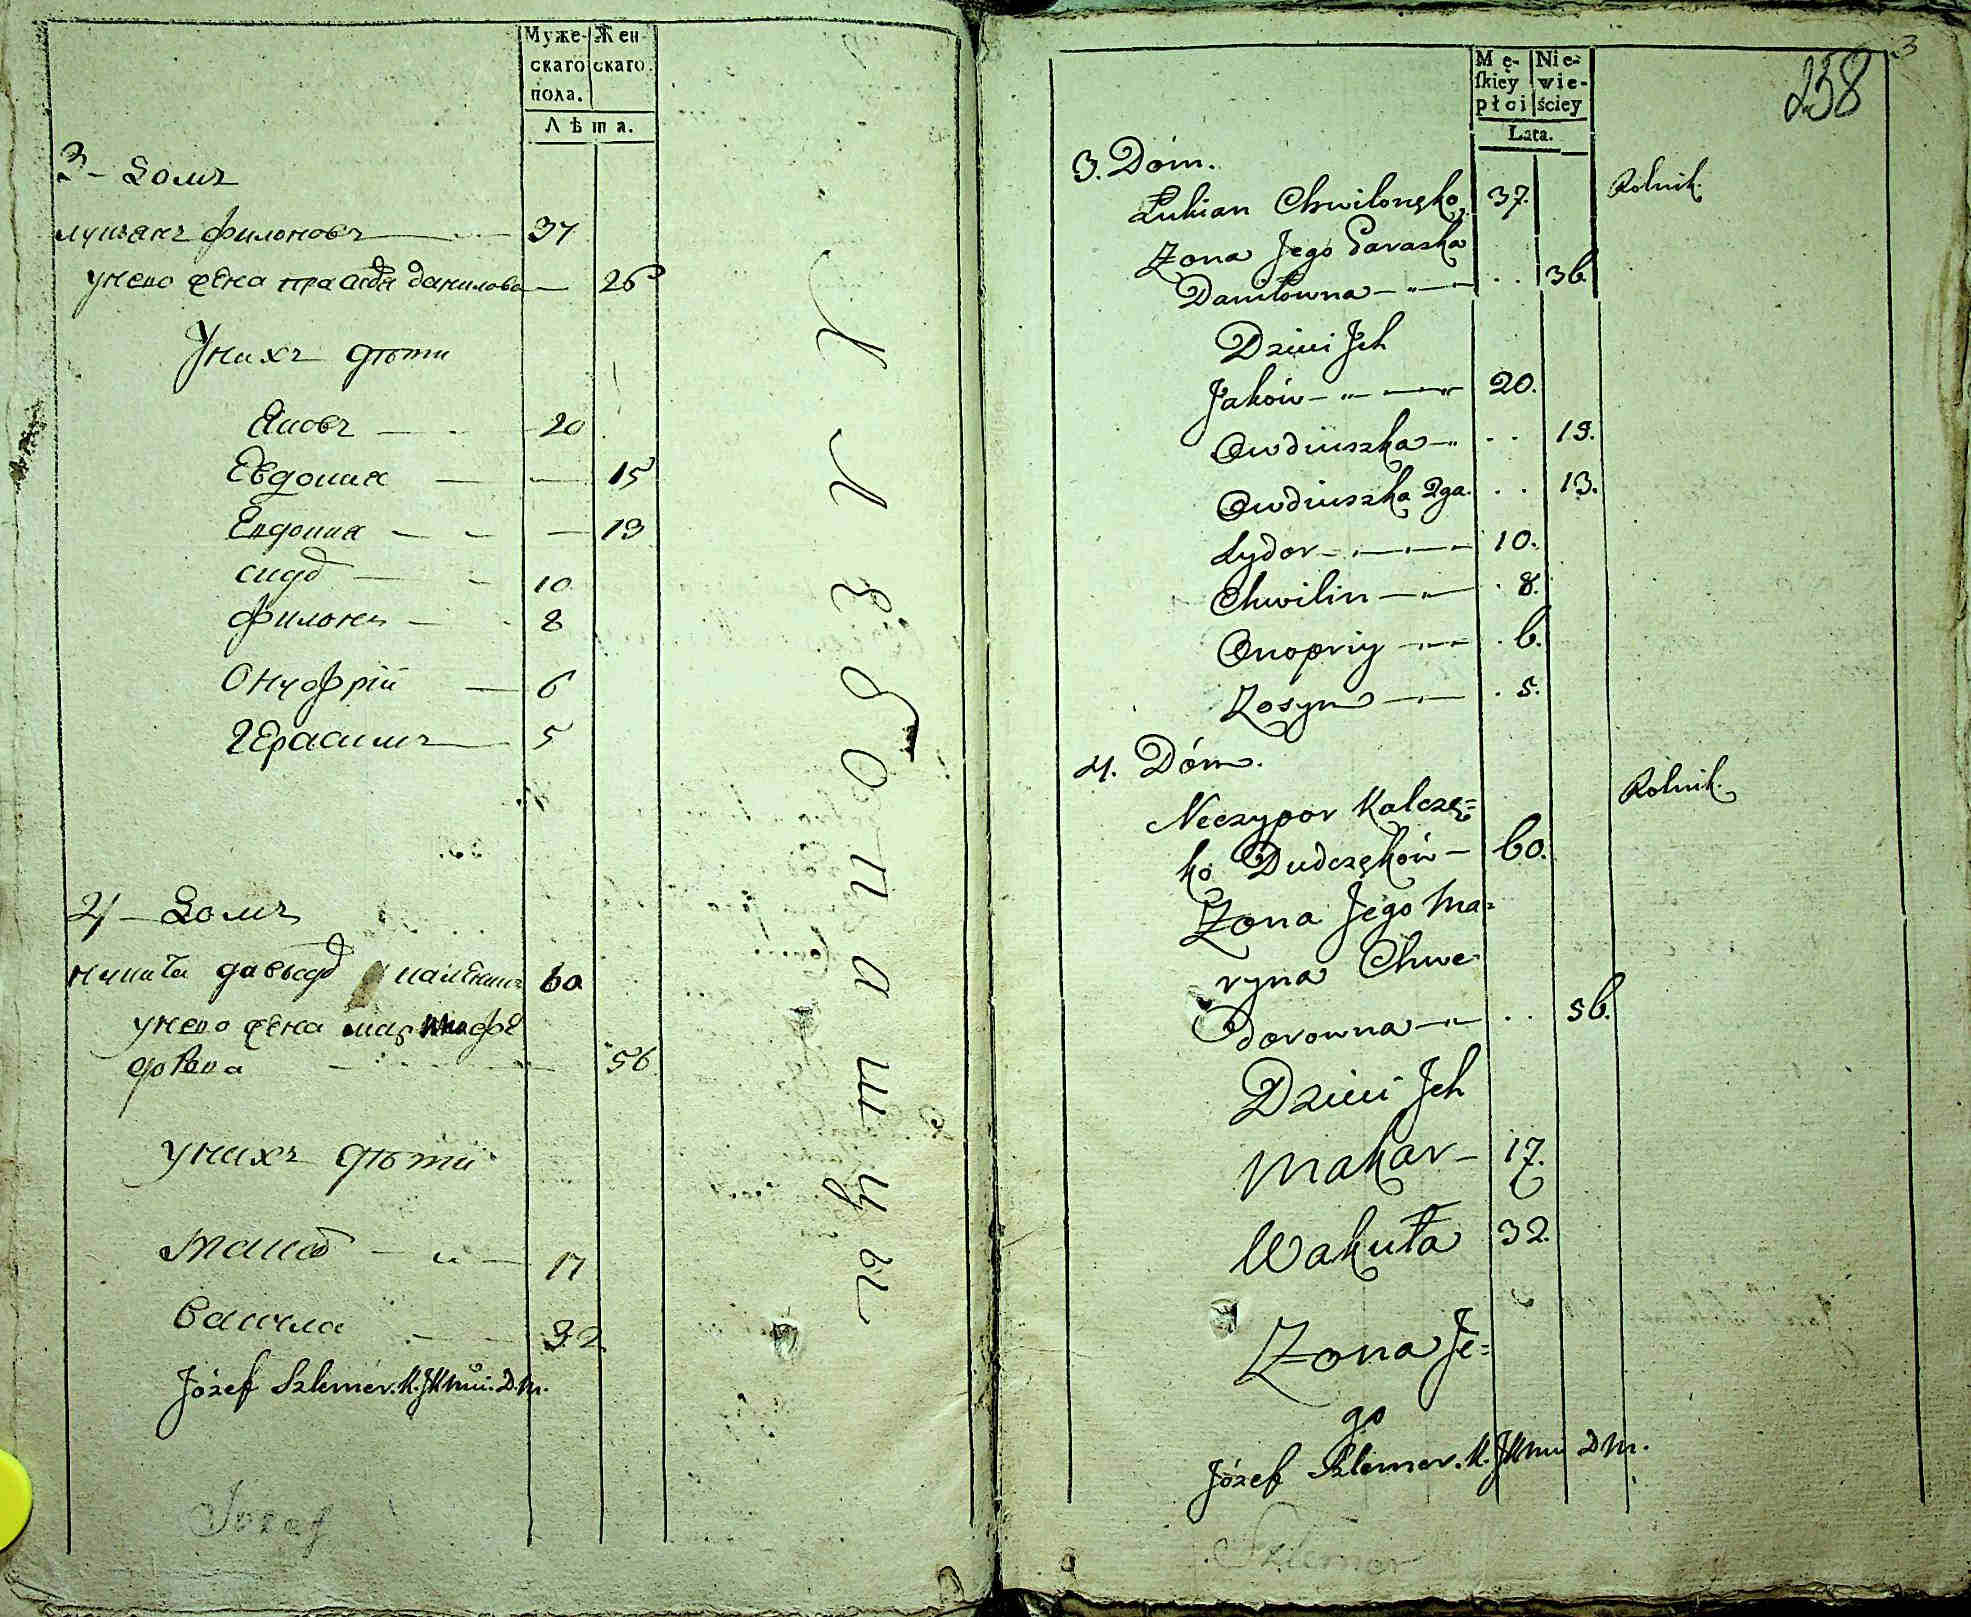 Муже-
скаго
пола.
Жен-
скаго.
Лѣта.
3 – Домъ
лукьянъ филоновъ 37
унево жена прасковя данилова 26
Унихъ дѣти
Яковъ 20
Евдокия 15
Евдокия 13
сидор 10
филонъ 8
Онуфрій 6
Герасимъ 5
4 – Домъ
никита 60
унево жена
56
унихъ дѣти
макар 17
вакула 32
Józef Szlemer. K. JKMci. D. m.
Józef
Хлебопашцы
3
258
Mę-
ſkiey
płci
Nie-
wie-
ściey
Lata.
3. Dóm.
Łukian Chwilonęko 37. Rolnik.
Zona Jego Paraska
Daniłowna – . . 36
Dzieci Jch
Jaków – 20.
Owdiuszka – . . 15.
Owdiuszka 2ga . . 13.
Sydor – 10.
Chwilin – . 8.
Onopriy – . 6.
Zosym – . 5.
4. Dóm.
Neczypor Kalczę=
ko Dudczęków – 60. Rolnik.
Zona Jego Ma=
ryna Chwe
dorowna – . . 56.
Dzieci Jch
Makar – 17.
Wakuła 32.
Zona Je=
go
Józef Szlemer. K. JKMci D m.
Szlemer